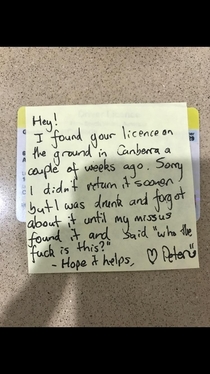 Hey!
I found your licence on
the ground in Canberra a
couple of weeks ago. Sorry
I didn't return it sooner,
but I was drunk and forgot
about it until my missus
found it and said "who the
fuck is this?"
- Hope it helps, ♡ Peter